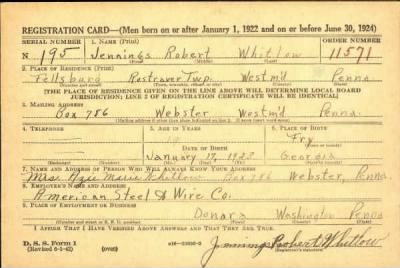 REGISTRATION CARD—(Men born on or after January 1, 1922 and on or before June 30, 1924)
SERIAL NUMBER 1. NAME (Print) ORDER NUMBER
N 195 Jennings Robert Whitlow 11571
(First) (Middle) (Last)
2. PLACE OF RESIDENCE (Print)
Fellsburg Rostraver Twp. Westm'd Penna
[THE PLACE OF RESIDENCE GIVEN ON THE LINE ABOVE WILL DETERMINE LOCAL BOARD
JURISDICTION; LINE 2 OF REGISTRATION CERTIFICATE WILL BE IDENTICAL]
3. MAILING ADDRESS
Box 786 Webster Westm'd Penna.
[Mailing address if other than place indicated on line 2. If same insert word same]
4. TELEPHONE 5. AGE IN YEARS 6. PLACE OF BIRTH
Fry
DATE OF BIRTH
January 17, 1923 Georgia
(Exchange) (Number) (Mo.) (Day) (Yr.) (State or country)
7. NAME AND ADDRESS OF PERSON WHO WILL ALWAYS KNOW YOUR ADDRESS
Mrs. Marie Whitlow Box 786 Webster, Penna.
8. EMPLOYER'S NAME AND ADDRESS
American Steel & Wire Co.
9. PLACE OF EMPLOYMENT OR BUSINESS
Donora Washington Penna
(Number and street or R. F. D. number) (Town) (County) (State)
I AFFIRM THAT I HAVE VERIFIED ABOVE ANSWERS AND THAT THEY ARE TRUE.
D. S. S. Form 1
(Revised 6-1-42) (over) Jennings Robert Whitlow